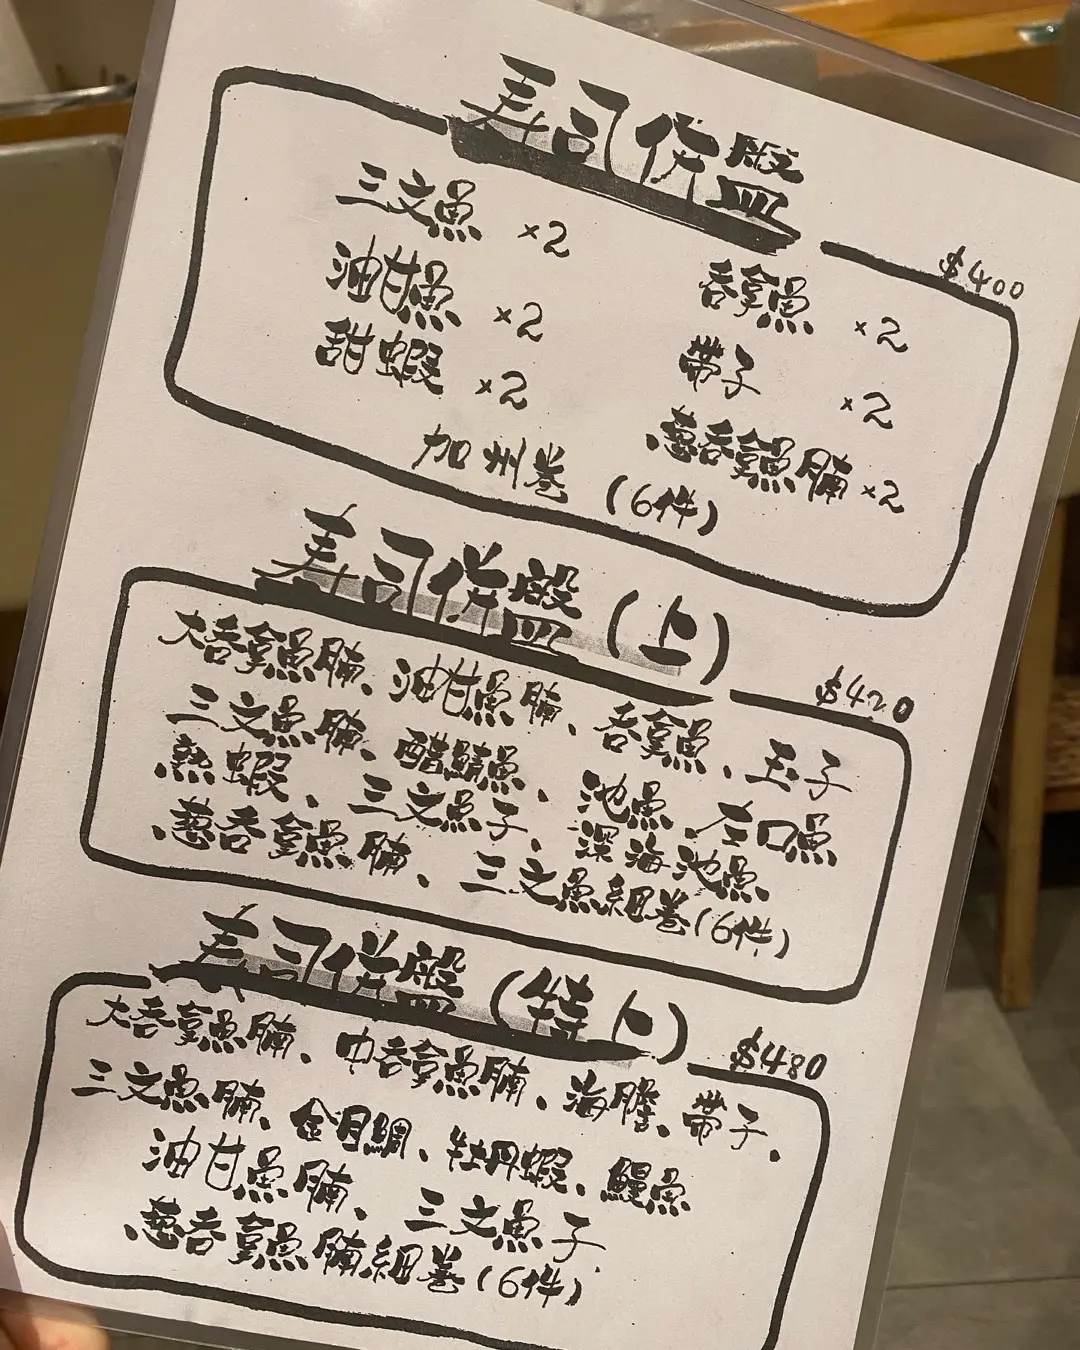 寿司併盤
$400
三文魚 ×2
吞拿魚 ×2
油甘魚 ×2
帶子 ×2
甜蝦 ×2
葱吞拿魚腩 ×2
加州卷 (6件)
寿司併盤 (上)
$420
大吞拿魚腩、油甘魚腩、吞拿魚、玉子
三文魚腩、醋鯖魚、池魚、左口魚
熟蝦、三文魚子、深海池魚
葱吞拿魚腩、三文魚細卷(6件)
寿司併盤 (特上)
$480
大吞拿魚腩、中吞拿魚腩、海膽、帶子、
三文魚腩、金目鯛、牡丹蝦、鰻魚
油甘魚腩、三文魚子
葱吞拿魚腩細卷(6件)